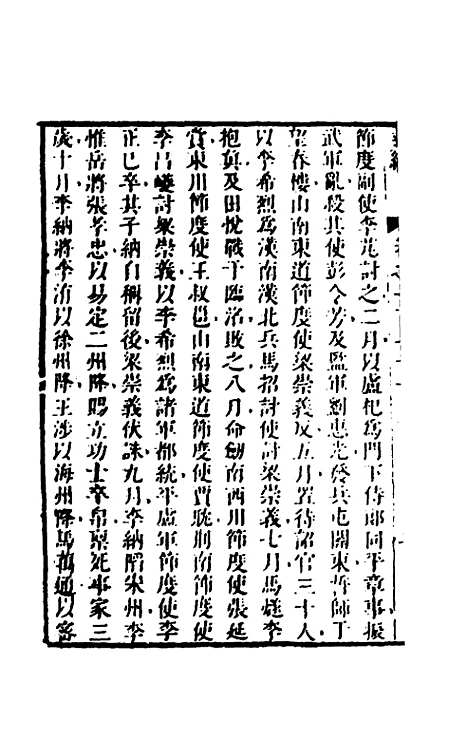 節度副使李芃討之二月以盧杞爲門下侍郎同平章事振
武軍亂殺其使彭令芳及監軍劉惠光發兵屯關東誓師丁
望春樓山南東道節度使梁崇義反五月置待詔官三十人
以李希烈爲漢南漢北兵馬招討使討梁崇義七月馬燧李
抱真及田悅戰于臨洺敗之八月命劒南西川節度使張延
賞東川節度使王叔邕山南東道節度使賈耽荆南節度使
李昌巙討梁崇義以李希烈爲諸軍都統平盧軍節度使李
正巳卒其子納自稱留後梁崇義伏誅九月李納陷宋州李
惟岳將張孝忠以易定二州降賜立功士卒帛稟死事家三
歲十月李納將李洧以徐州降王涉以海州降馬萬通以密